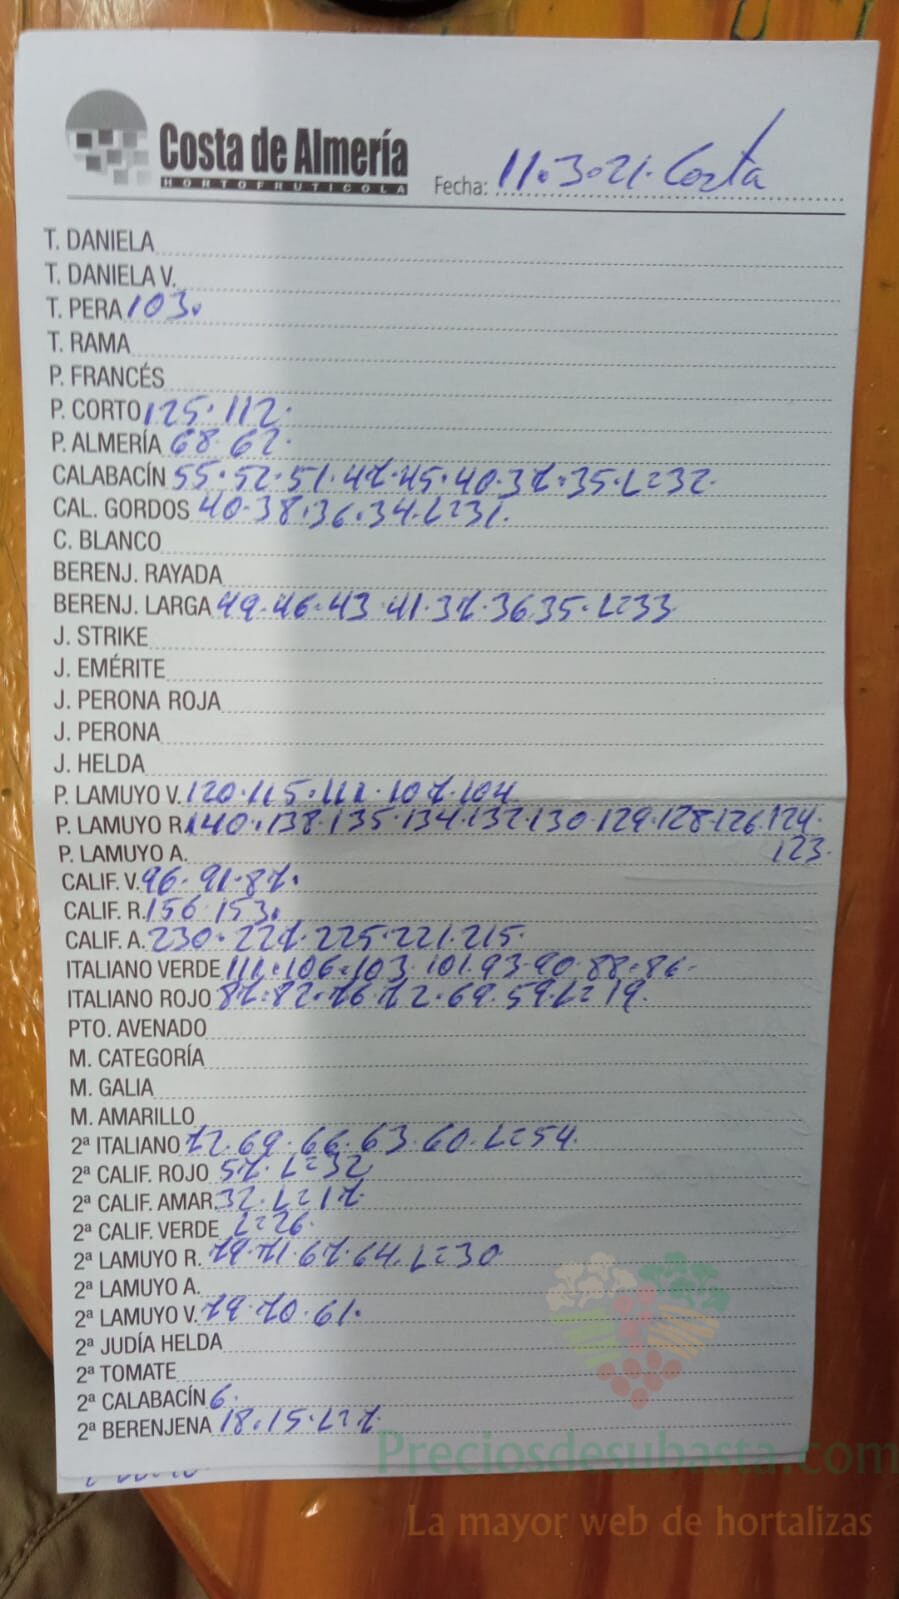 Costa de Almería
HORTOFRUTICOLA
Fecha: 11.3.21. Costa
T. DANIELA
T. DANIELA V.
T. PERA 103.
T. RAMA
P. FRANCÉS
P. CORTO 125. 112.
P. ALMERÍA 68 62.
CALABACÍN 55. 52. 51. 47. 45. 40. 37. 35. L=32.
CAL. GORDOS 40. 38. 36. 34. L=31.
C. BLANCO
BERENJ. RAYADA
BERENJ. LARGA 49. 46. 43 41. 37. 36. 35. L=33
J. STRIKE
J. EMÉRITE
J. PERONA ROJA
J. PERONA
J. HELDA
P. LAMUYO V. 120. 115. 111. 107. 104
P. LAMUYO R. 140. 138. 135. 134. 132. 130. 129. 128. 126. 124.
P. LAMUYO A. 123.
CALIF. V. 96. 91. 87.
CALIF. R. 156 153.
CALIF. A. 230. 227. 225. 221. 215.
ITALIANO VERDE 111. 106. 103. 101. 93. 90. 88. 86.
ITALIANO ROJO 87. 82. 76. 72. 69. 59. L=19.
PTO. AVENADO
M. CATEGORÍA
M. GALIA
M. AMARILLO
2ª ITALIANO 72. 69. 66. 63. 60. L=54.
2ª CALIF. ROJO 57. L=32
2ª CALIF. AMAR 32. L=17.
2ª CALIF. VERDE L=26.
2ª LAMUYO R. 79. 71. 67. 64. L=30
2ª LAMUYO A.
2ª LAMUYO V. 79 70. 61.
2ª JUDÍA HELDA
2ª TOMATE
2ª CALABACÍN 6.
2ª BERENJENA 18. 15. L=7.
Preciosdesubasta.com
La mayor web de hortalizas